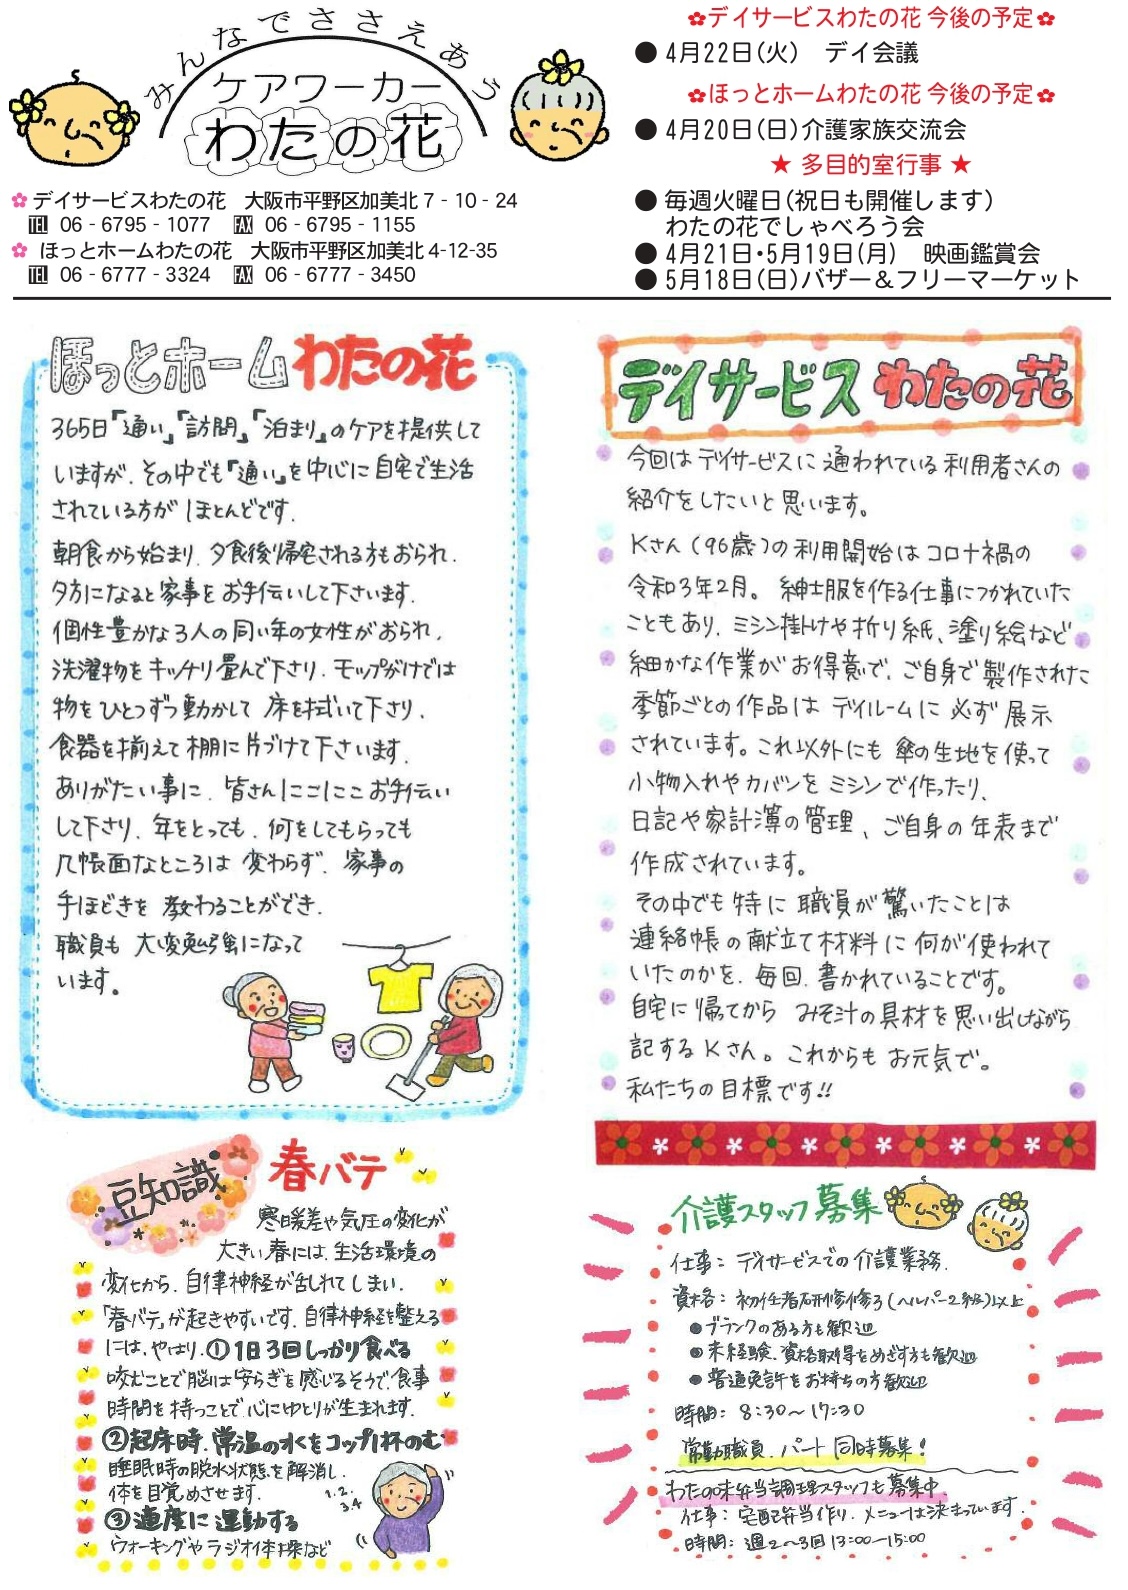 みんなでささえあう
ケアワーカー
わたの花
✿デイサービスわたの花 今後の予定✿
● 4月22日(火) デイ会議
✿ほっとホームわたの花 今後の予定✿
● 4月20日(日)介護家族交流会
★ 多目的室行事 ★
● 毎週火曜日(祝日も開催します)
わたの花でしゃべろう会
● 4月21日・5月19日(月) 映画鑑賞会
● 5月18日(日)バザー＆フリーマーケット
✿ デイサービスわたの花 大阪市平野区加美北 7 - 10 - 24
TEL 06 - 6795 - 1077 FAX 06 - 6795 - 1155
✿ ほっとホームわたの花 大阪市平野区加美北 4-12-35
TEL 06 - 6777 - 3324 FAX 06 - 6777 - 3450
ほっとホームわたの花
365日『通い』『訪問』『泊まり』のケアを提供して
いますが、その中でも『通い』を中心に自宅で生活
されている方がほとんどです。
朝食から始まり、夕食後帰宅される方もおられ、
夕方になると家事をお手伝いして下さいます。
個性豊かな3人の同い年の女性がおられ、
洗濯物をキッチリ畳んで下さり、モップがけでは
物をひとつずつ動かして床を拭いて下さり、
食器を揃えて棚に片づけて下さいます。
ありがたい事に、皆さんにこにこお手伝い
して下さり、年をとっても、何をしてもらっても
几帳面なところは変わらず、家事の
手ほどきを教わることができ、
職員も大変勉強になって
います。
デイサービスわたの花
今回はデイサービスに通われている利用者さんの
紹介をしたいと思います。
Kさん(96歳)の利用開始はコロナ禍の
令和3年2月。紳士服を作る仕事につかれていた
こともあり、ミシン掛けや折り紙、塗り絵など
細かな作業がお得意で、ご自身で製作された
季節ごとの作品はデイルームに必ず展示
されています。これ以外にも傘の生地を使って
小物入れやカバンをミシンで作ったり、
日記や家計簿の管理、ご自身の年表まで
作成されています。
その中でも特に職員が驚いたことは
連絡帳の献立て材料に何が使われて
いたのかを、毎回、書かれていることです。
自宅に帰ってからみそ汁の具材を思い出しながら
記するKさん。これからもお元気で。
私たちの目標です!!
豆知識
春バテ
寒暖差や気圧の変化が
大きい春には、生活環境の
変化から、自律神経が乱れてしまい、
「春バテ」が起きやすいです。自律神経を整える
には、やはり、①1日3回しっかり食べる
咬むことで脳は安らぎを感じるそうで、食事
時間を持つことで心にゆとりが生まれます。
②起床時、常温の水をコップ1杯のむ
睡眠時の脱水状態を解消し、
体を目覚めさせます。
1.2.
3.4
③適度に運動する
ウォーキングやラジオ体操など
介護スタッフ募集
仕事：デイサービスでの介護業務
資格：初任者研修修了(ヘルパー2級)以上
●ブランクのある方も歓迎
●未経験、資格取得をめざす方も歓迎
●普通免許をお持ちの方歓迎
時間：8:30〜17:30
常勤職員、パート同時募集！
わたの味弁当調理スタッフも募集中
仕事：宅配弁当作り、メニューは決まっています。
時間：週2〜3回 13:00〜15:00